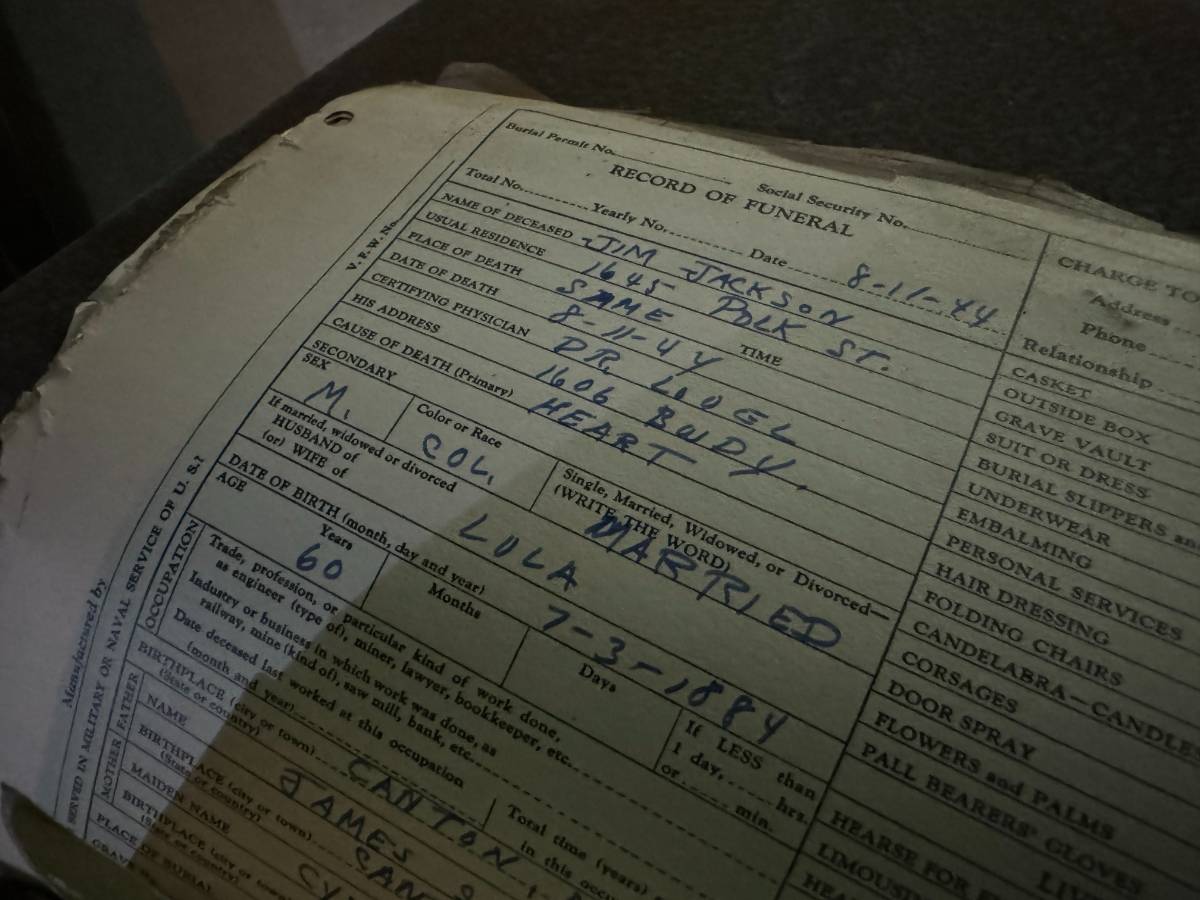 Burial Permit No. Social Security No.
RECORD OF FUNERAL
Total No. Yearly No. Date 8-11-44
NAME OF DECEASED JIM JACKSON
USUAL RESIDENCE 1645 POLK ST.
PLACE OF DEATH SAME
DATE OF DEATH 8-11-44 TIME
CERTIFYING PHYSICIAN DR.
HIS ADDRESS 1606 BWDY.
CAUSE OF DEATH (Primary) HEART
SECONDARY
SEX M. Color or Race COL. Single, Married, Widowed, or Divorced—
(WRITE THE WORD) MARRIED
If married, widowed or divorced
HUSBAND of
(or) WIFE of LULA
DATE OF BIRTH (month, day and year) 7-3-1884
AGE Years 60 Months Days If LESS than
1 day, hrs.
or min.
OCCUPATION
Trade, profession, or particular kind of work done,
as engineer (type of), miner, lawyer, bookkeeper, etc.
Industry or business in which work was done, as
railway, mine (kind of), saw mill, bank, etc.
Date deceased last worked at this occupation
(month and year) Total time (years)
in this
BIRTHPLACE (city or town) CANTON
(State or country)
FATHER
NAME JAMES
BIRTHPLACE (city or town)
(State or country)
MOTHER
MAIDEN NAME
BIRTHPLACE (city or
(State or country)
PLACE OF BURIAL
V.F.W. No.
SERVED IN MILITARY OR NAVAL SERVICE OF U. S.?
Manufactured by
CHARGE TO
Address
Phone
Relationship
CASKET
OUTSIDE BOX
GRAVE VAULT
SUIT OR DRESS
BURIAL SLIPPERS and
UNDERWEAR
EMBALMING
PERSONAL SERVICES
HAIR DRESSING
FOLDING CHAIRS
CANDELABRA—CANDLES
CORSAGES
DOOR SPRAY
FLOWERS and PALMS
PALL BEARERS' GLOVES
HEARSE FOR